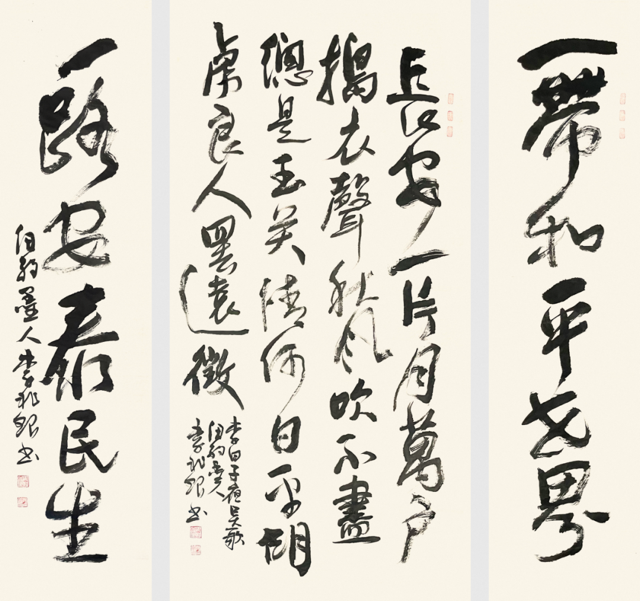 一帶和平世界
長安一片月萬戶
搗衣聲秋風吹不盡
總是玉關情何日平胡
虜良人罷遠徵
李白子夜吳歌
紐約墨人
李銀書
一路安泰民生
紐約墨人李銀書